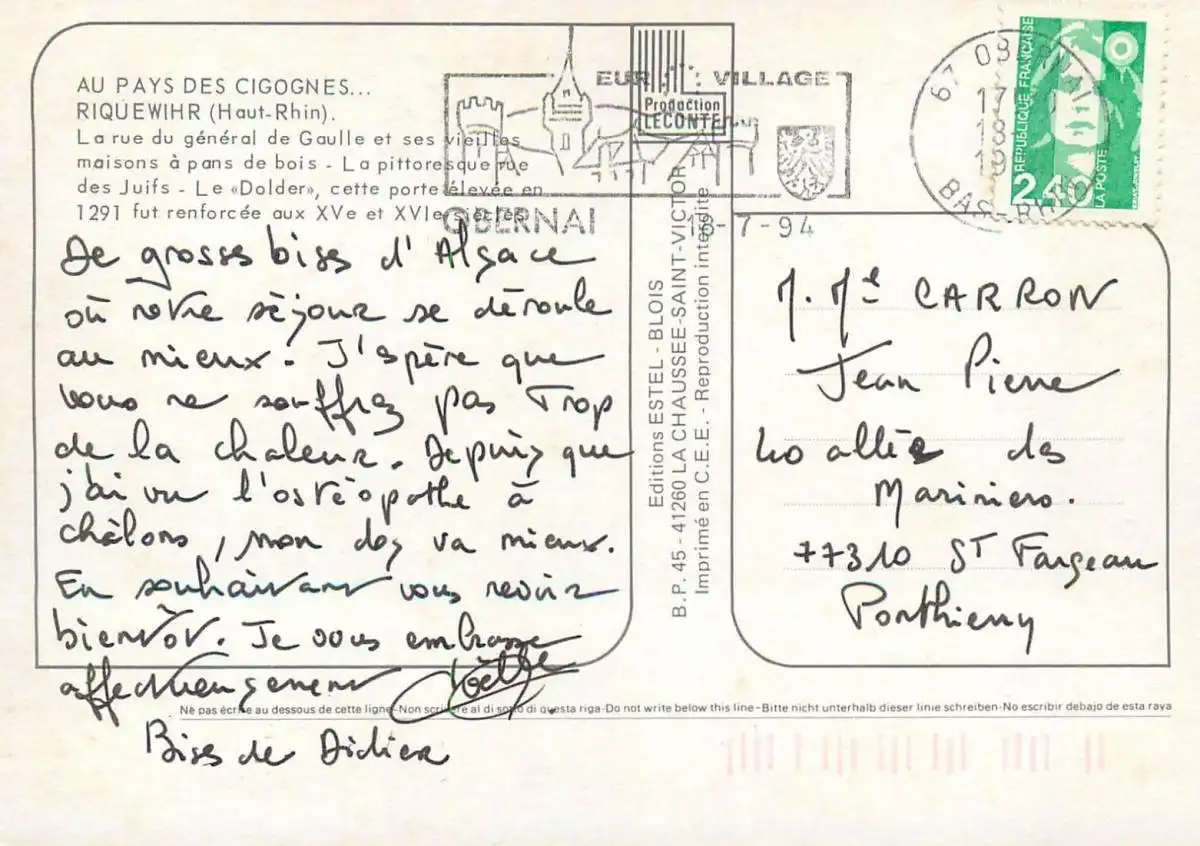 AU PAYS DES CIGOGNES...
RIQUEWIHR (Haut-Rhin).
La rue du général de Gaulle et ses vieilles
maisons à pans de bois - La pittoresque rue
des Juifs - Le «Dolder», cette porte élevée en
1291 fut renforcée aux XVe et XVIe siècles.
De grosses bises d'Alsace
où notre séjour se déroule
au mieux. J'espère que
vous ne souffrez pas trop
de la chaleur. Depuis que
j'ai vu l'ostéopathe à
châlons, mon dos va mieux.
En souhaitant vous revoir
bientôt. Je vous embrasse
affectueusement
Bises de Didier
EUR VILLAGE
Production
LECONTE
OBERNAI
18-7-94
67 OBERNAI
17
18
19
BAS-RHIN
REPUBLIQUE FRANÇAISE
2,40
LA POSTE
Editions ESTEL - BLOIS
B.P. 45 - 41260 LA CHAUSSEE-SAINT-VICTOR
Imprimé en C.E.E. - Reproduction interdite
M. Me CARRON
Jean Pierre
40 allée des
Mariniers.
77310 ST Fargeau
Ponthierry
Ne pas écrire au dessous de cette ligne-Non scrivere al di sotto di questa riga-Do not write below this line-Bitte nicht unterhalb dieser linie schreiben-No escribir debajo de esta raya